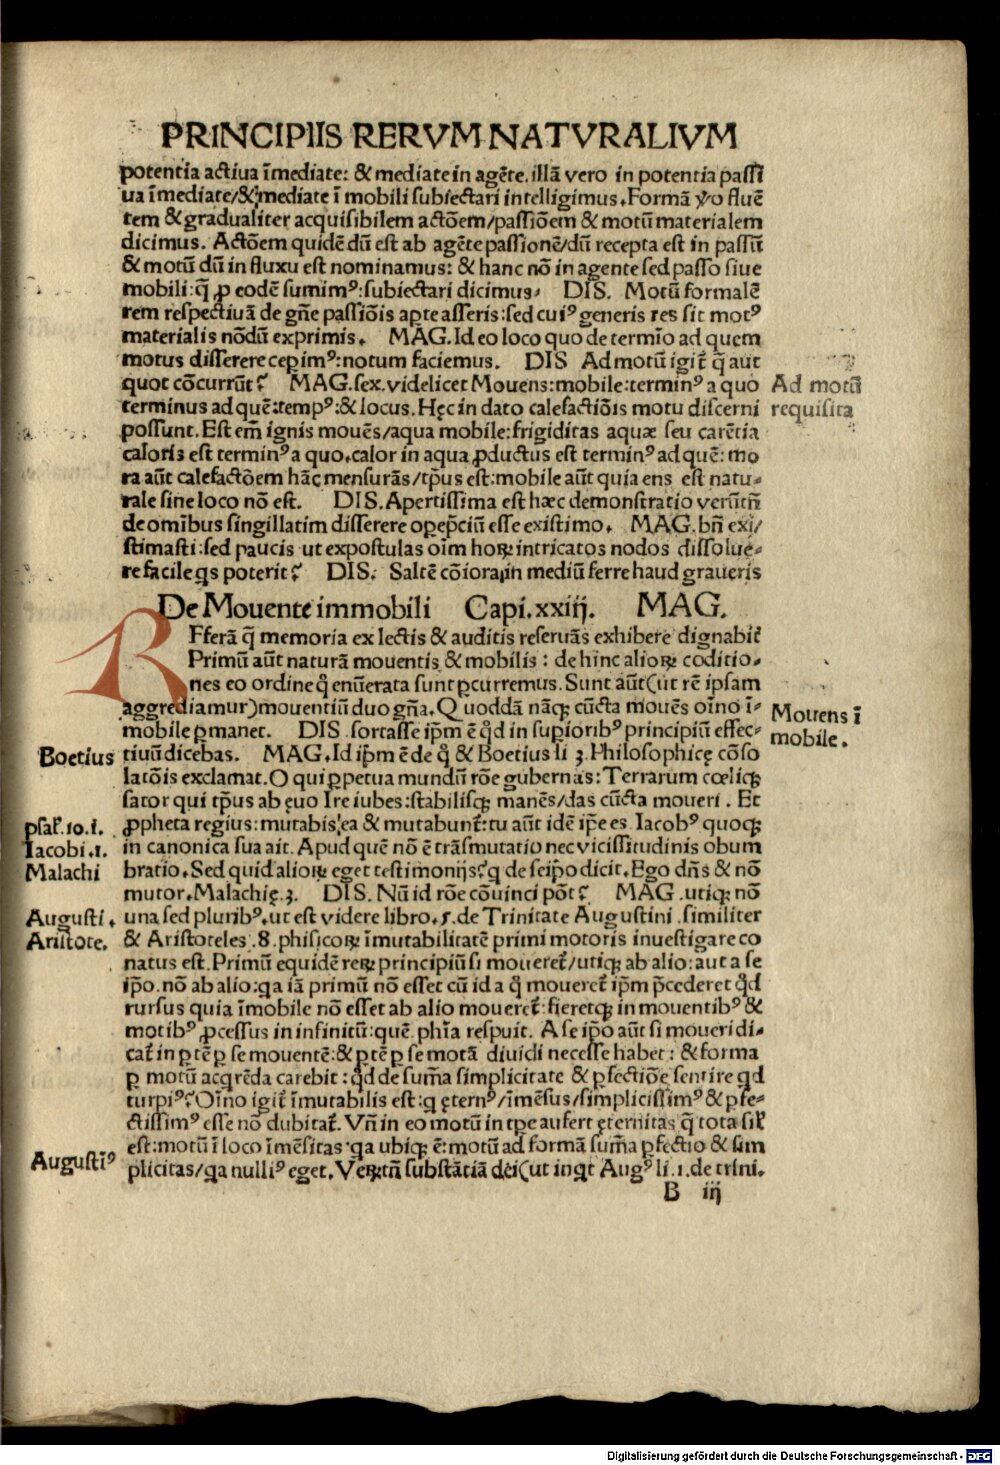 PRINCIPIIS RERVM NATVRALIVM
potentia actiua īmediate: & mediate in agēte. illā vero in potentia passi
ua īmediate/& mediate ī mobili subiectari intelligimus. Formā ꝟo fluē
tem & gradualiter acquisibilem actōem/passiōem & motū materialem
dicimus. Actōem quidē dū est ab agēte passionē/dū recepta est in passū
& motū dū in fluxu est nominamus: & hanc nō in agente sed passo siue
mobili: q̄ ꝓ eodē sumimꝰ: subiectari dicimus. DIS. Motū formalē
rem respectiuā de gn̄e passiōis apte asseris: sed cuiꝰ generis res sit motꝰ
materialis nōdū exprimis. MAG. Id eo loco quo de termīo ad quem
motus disserere cepimꝰ: notum faciemus. DIS Ad motū igit̄ q̄ aut
quot cōcurrūt? MAG. sex. videlicet Mouens: mobile: terminꝰ a quo
Ad motū
terminus ad quē: tempꝰ: & locus. Hęc in dato calefactiōis motu discerni
requisita
possunt. Est em̄ ignis mouēs/aqua mobile: frigiditas aquæ seu carētia
caloris est terminꝰ a quo. calor in aqua ꝓductus est terminꝰ ad quē: mo
ra aūt calefactōem hāc mensurās/tp̄us est: mobile aūt quia ens est natu-
rale sine loco nō est. DIS. Apertissima est hæc demonstratio verūtn̄
de omībus singillatim disserere opep̄ciū esse existimo. MAG. bn̄ exi/
stimasti: sed paucis ut expostulas oīm hoꝝ intricatos nodos dissolue-
re facile qs poterit? DIS. Saltē cōiora in mediū ferre haud graueris
De Mouente immobili Capi. xxiij. MAG.
R Efferā q̄ memoria ex lectis & auditis reseruās exhibere dignabit̄
Primū aūt naturā mouentis & mobilis: de hinc alioꝝ coditio-
nes eo ordine q̄ enūerata sunt ꝑcurremus. Sunt aūt (ut rē ipsam
aggrediamur) mouentiū duo gn̄a. Quoddā nāqꝫ cūcta mouēs oīno ī-
Mouens ī
mobile ꝑmanet. DIS fortasse ip̄m ē qd̄ in supioribꝰ principiū effec-
mobile.
Boetius
tiuū dicebas. MAG. Id ip̄m ē de q̄ & Boetius li ȝ. Philosophicę cōso
latōis exclamat. O qui ꝑpetua mundū rōe gubernas: Terrarum cœliqꝫ
sator qui tp̄us ab ęuo Ire iubes: stabilisqꝫ manēs/das cūcta moueri. Et
psal. 10.1.
ꝓpheta regius: mutabis ea & mutabunt̄: tu aūt idē ip̄e es. Iacobꝰ quoqꝫ
Iacobi .1.
in canonica sua ait. Apud quē nō ē trāsmutatio nec vicissitudinis obum
Malachi
bratio. Sed quid alioꝝ eget testimonijs? q de seip̄o dicit. Ego dn̄s & nō
mutor. Malachię. ȝ. DIS. Nū id rōe cōuinci pōt? MAG. utiqꝫ nō
Augusti.
una sed pluribꝰ. ut est videre libro. 5. de Trinitate Augustini. similiter
Aristote.
& Aristoteles .8. phisicoꝝ īmutabilitatē primi motoris inuestigare co
natus est. Primū equidē reꝝ principiū si mouereт̄/utiqꝫ ab alio: aut a se
ip̄o. nō ab alio: qa iā primū nō esset cū id a q̄ moueret̄ ip̄m p̄cederet qd̄
rursus quia īmobile nō esset ab alio moueret̄: fieretqꝫ in mouentibꝰ &
motibꝰ ꝓcessus in infinitū: quē phīa respuit. A se ip̄o aūt si moueri di-
cat̄ in ꝑtē ꝑ se mouentē: & ꝑtē ꝑ se motā diuidi necesse habet: & forma
ꝑ motū acqrēda carebit: qd̄ de sum̄a simplicitate & ꝑfectiōe sentire qd
turpiꝰ? Oīno igit̄ īmutabilis est: q ęternꝰ/īmēsus/simplicissimꝰ & ꝑfe-
ctissimꝰ esse nō dubitat̄. Vn̄ in eo motū in tp̄e aufert ęternitas q̄ tota sil̄
est: motū ī loco īmēsitas qa ubiqꝫ ē: motū ad formā sum̄a ꝑfectio & sim
Augustīꝰ
plicitas/qa nulliꝰ eget. Veꝝtn̄ substātiā dei (ut inqt Augꝰ li.1. de trini.
B iij
Digitalisierung gefördert durch die Deutsche Forschungsgemeinschaft - DFG